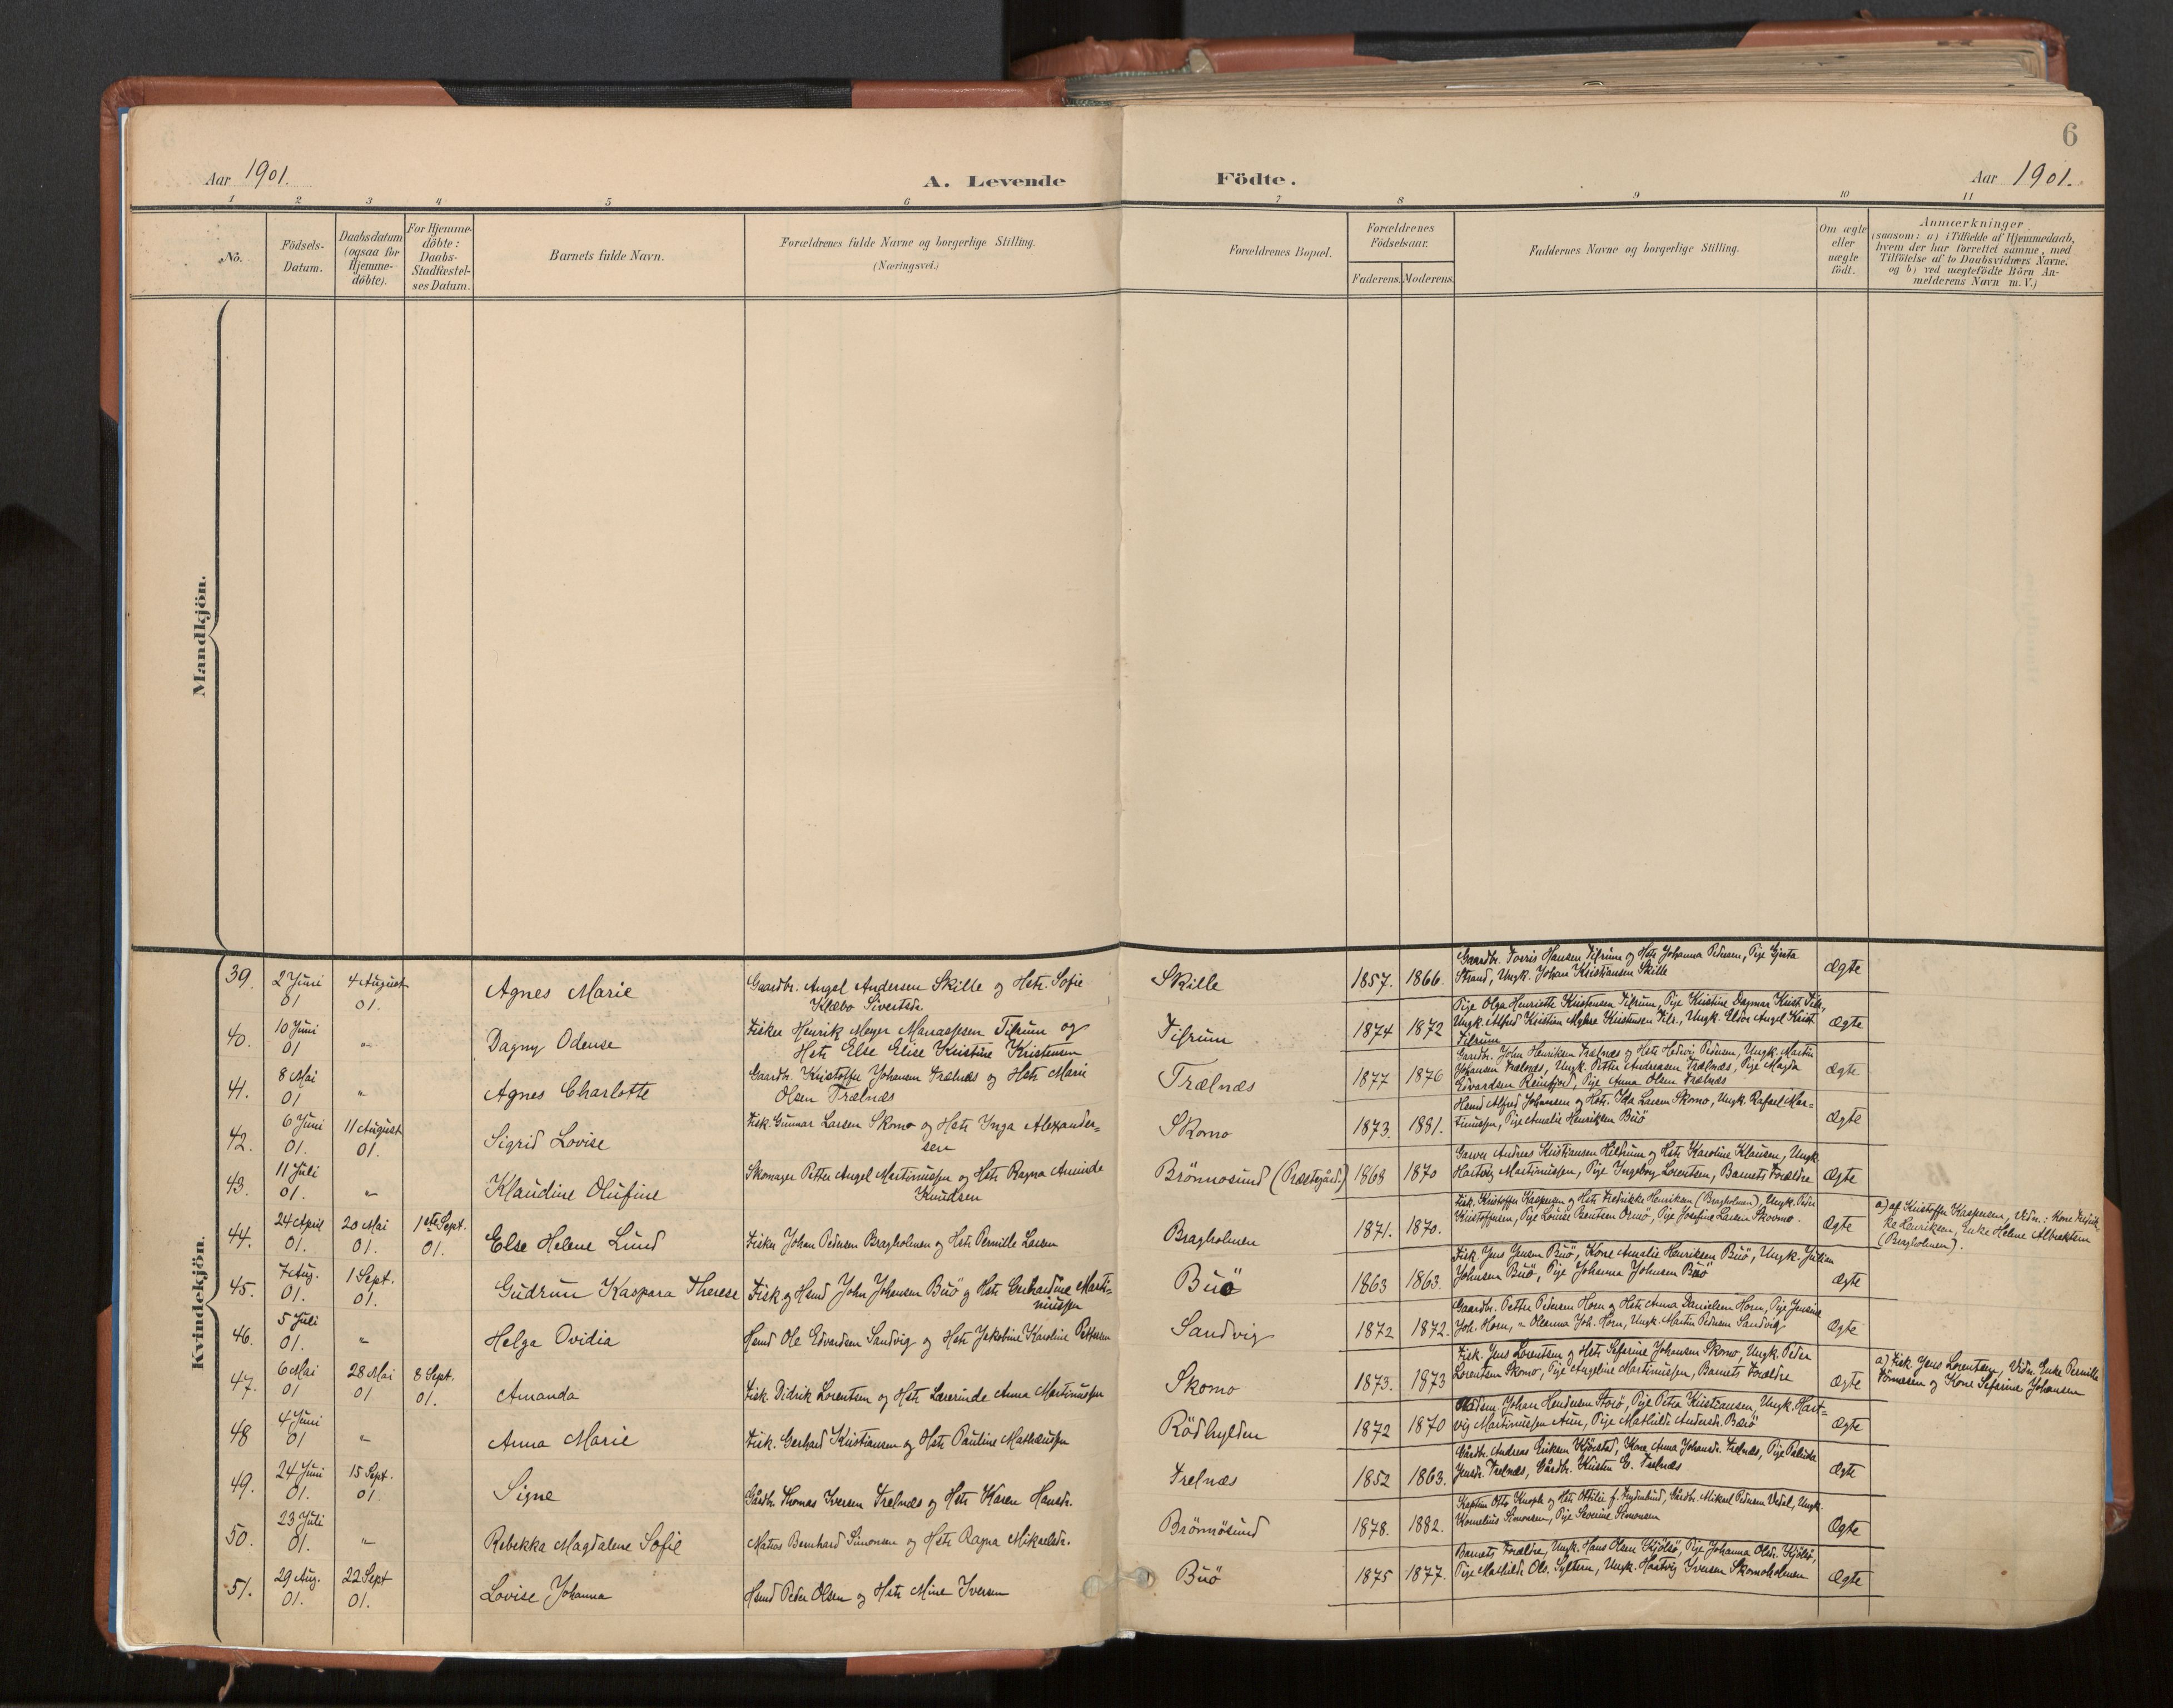 6
Aar 1901.
A. Levende Födte.
Aar 1901.
1 2 3 4 5 6 7 8 9 10 11
No.
Födsels-
Datum.
Daabsdatum
(ogsaa for
Hjemme-
döbte).
For Hjemme-
döbte:
Daabs-
Stadfæstel-
ses Datum.
Barnets fulde Navn.
Forældrenes fulde Navne og borgerlige Stilling.
(Næringsvei.)
Forældrenes Bopæl.
Forældrenes
Födselsaar.
Faderens. Moderens.
Faddernes Navne og borgerlige Stilling.
Om ægte
eller
uægte
födt.
Anmærkninger
(saasom: a) i Tilfælde af Hjemmedaab,
hvem der har forrettet samme, med
Tilföielse af to Daabsvidners Navne.
og b) ved uægtefödte Börn An-
melderens Navn m. V.)
Mandkjön.
Kvindekjön.
39. 2 Juni 01 4 August 01. Agnes Marie
Gaardbr. Angel Andersen Skille og Hstr. Sofie
Klæbo Sivertsdr.
Skille 1857. 1866.
Gaardbr. Toeris Hansen Tilrum og Hstr Johanna Pedersen, Pige
Strand, Ungk. Johan Kristiansen Skille
Ægte
40. 10 Juni 01 " Dagny Odense
Fisker Henrik Meyer Manassesen Tilrum og
Hstr Else Elise Kristine Kristensen
Tilrum 1874 1872
Pige Olga Henriette Kristensen Tilrum, Pige Kristine Dagmar Krist. Tilr.,
Ungk. Alfred Kristian Kristensen Tilr., Ungk. Angel Krist
Tilrum
Ægte
41. 8 Mai 01 " Agnes Charlotte
Gaardbr. Kristoffer Johansen Trælnæs og Hstr Marie
Olsen Trælnæs
Trælnæs 1877 1876
Gaardbr. John Henriksen Trælnæs og Hstr Hedvig Pedersen, Ungk. Martin
Johansen Trælnæs, Ungk. Petter Andreasen Trælnæs, Pige Magda
Edvardsen Reinfjord, Pige Anna Olsen Trælnæs
Ægte
42. 6 Juni 01. 11 August 01. Sigrid Lovise
Fisk. Gunnar Larsen Skomo og Hstr Inga Alexander=
sen
Skomo 1873. 1881.
Hsmd Alfred Johansen og Hstr. Ida Larsen Skomo, Ungk. Rafael Mar=
tinussen, Pige Amalie Henriksen Buö
Ægte
43. 11 Juli 01. " Klaudine Olufine
Skomager Petter Angel Martinussen og Hstr Ragna Aminde
Knudsen
Brönnosund (Præstegård.) 1868 1870
Garver Andreas Kristiansen Hildrum og Hstr Karoline Klausen, Ungk.
Hartvig Martinussen, Pige Ingeborg Lorentsen, Barnets Forældre
Ægte
44. 24 April 01. 20 Mai 01. 1ste Sept. 01. Else Helene Lund
Fisker Johan Pedersen Bragholmen og Hstr Pernille Larsen
Bragholmen 1871. 1870.
Fisk. Kristoffer Kaspersen og Hstr Fredrikke Henriksen (Bragholmen), Ungk. Peder
Kristoffersen, Pige Louise Berntsen Ormö, Pige Josefine Larsen Skomo.
Ægte
a) af Kristoffer Kaspersen, Vidn.: Kone Fredrik=
ke Henriksen, Enke Helene Albrektsen
(Bragholmen).
45. 7 Aug. 01. 1 Sept. 01. Gudrun Kaspara Therese
Fisk. og Hsmd John Johansen Buö og Hstr Gerhardine Marti=
nussen
Buö 1863 1863.
Fisk. Jens Jensen Buö, Kone Amalie Henriksen Buö, Ungk. Julian
Johnsen Buö, Pige Johanna Johnsen Buö
Ægte
46. 5 Juli 01. " Helga Ovidia
Hsmd Ole Edvardsen Sandvig og Hstr Jakobine Karoline Pettersen
Sandvig 1872 1872.
Gaardbr. Petter Pedersen Horn og Hstr Anna Danielsen Horn, Pige Jensine
Joh. Horn, " Oleanna Joh. Horn, Ungk. Martin Pedersen Sandvig
Ægte
47. 6 Mai 01 28 Mai 01 8 Sept. 01. Amanda
Fisk. Didrik Lorentsen og Hstr Laverinde Anna Martinussen
Skomo 1873. 1873
Fisk. Jens Lorentsen og Hstr Sefarine Johansen Skomo, Ungk. Peder
Lorentsen Skomo, Pige Angeline Martinussen, Barnets Forældre
Ægte
a) Fisk. Jens Lorentsen, Vidn. Enke Pernille
og Kone Sefarine Johansen
48 4 Juni 01 " Anna Marie
Fisk. Gerhard Kristiansen og Hstr Pauline Mathæussen
Rödhylden 1872 1870
Johan Hendersen Storö, Pige Petra Kristiansen, Ungk. Hart=
vig Martinussen Aun, Pige Mathilde Andersdr.
Ægte
49. 24 Juni 01. 15 Sept. 01. Signe
Gårdbr. Thomas Iversen Trelnæs og Hstr Karen Hansdr.
Trelnæs 1852 1863.
Gårdbr. Andreas Eriksen Kjörstad, Kone Anna Johansdr. Trelnæs, Pige
Jensdr. Trelnæs, Gårdbr. Kristen E. Trelnæs
Ægte
50. 23 Juli 01. " Rebekka Magdalene Sofie
Matros Bernhard Simonsen og Hstr Ragna Mikaelsdr.
Brönnösund 1878. 1882.
Kaptein Otto og Hstr Ottilie f. Frydenlund, Gårdbr. Mikael Pedersen, Ungk.
Kornelius Simonsen, Pige Severine Simonsen
Ægte
51. 29 Aug. 01. 22 Sept 01. Lovise Johanna
Hsmd Peder Olsen og Hstr Mine Iversen
Buö 1875 1877.
Barnets Forældre, Ungk. Hans Olsen Kjölsö, Pige Johanna Olsdr. Kjölsö,
Pige Mathilde Ols. Syltern, Ungk. Hartvig Iversen Skomoholmen
Ægte